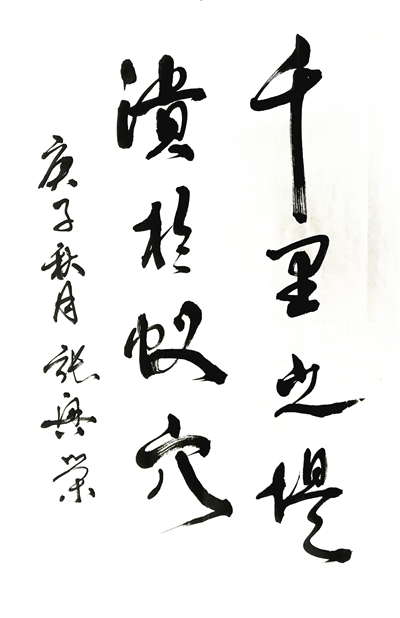 千里之堤
潰於蚁穴
庚子秋月 張興榮